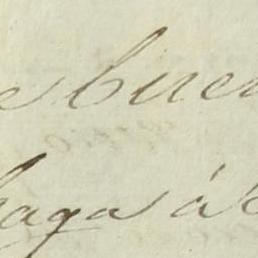 e buen
haga á